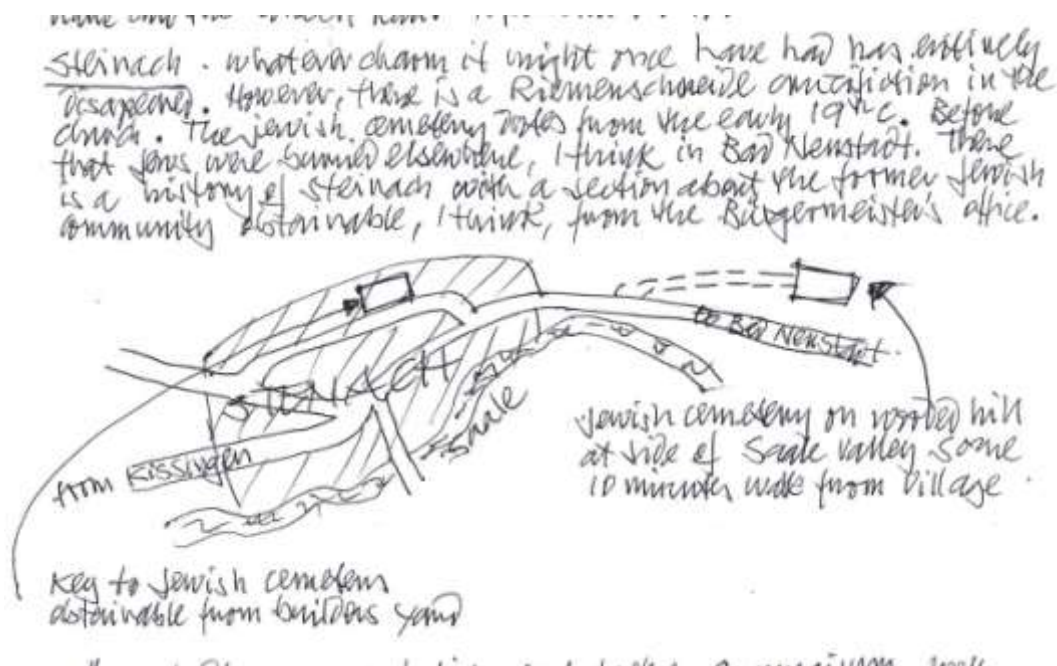 Steinach. whatever charm it might once have had has entirely
disappeared. However, there is a Riemenschneide crucifiction in the
church. The jewish cemetery dates from the early 19th C. Before
that Jews were burried elsewhere, I think in Bad Neustadt. There
is a history of Steinach with a section about the former Jewish
community obtainable, I think, from the Bürgermeister's office.
to Bad Neustadt.
STEINACH
Saale
from Kissingen
Jewish cemetery on wooded hill
at side of Saale valley some
10 minutes walk from village.
Key to Jewish cemetery
obtainable from builders yard